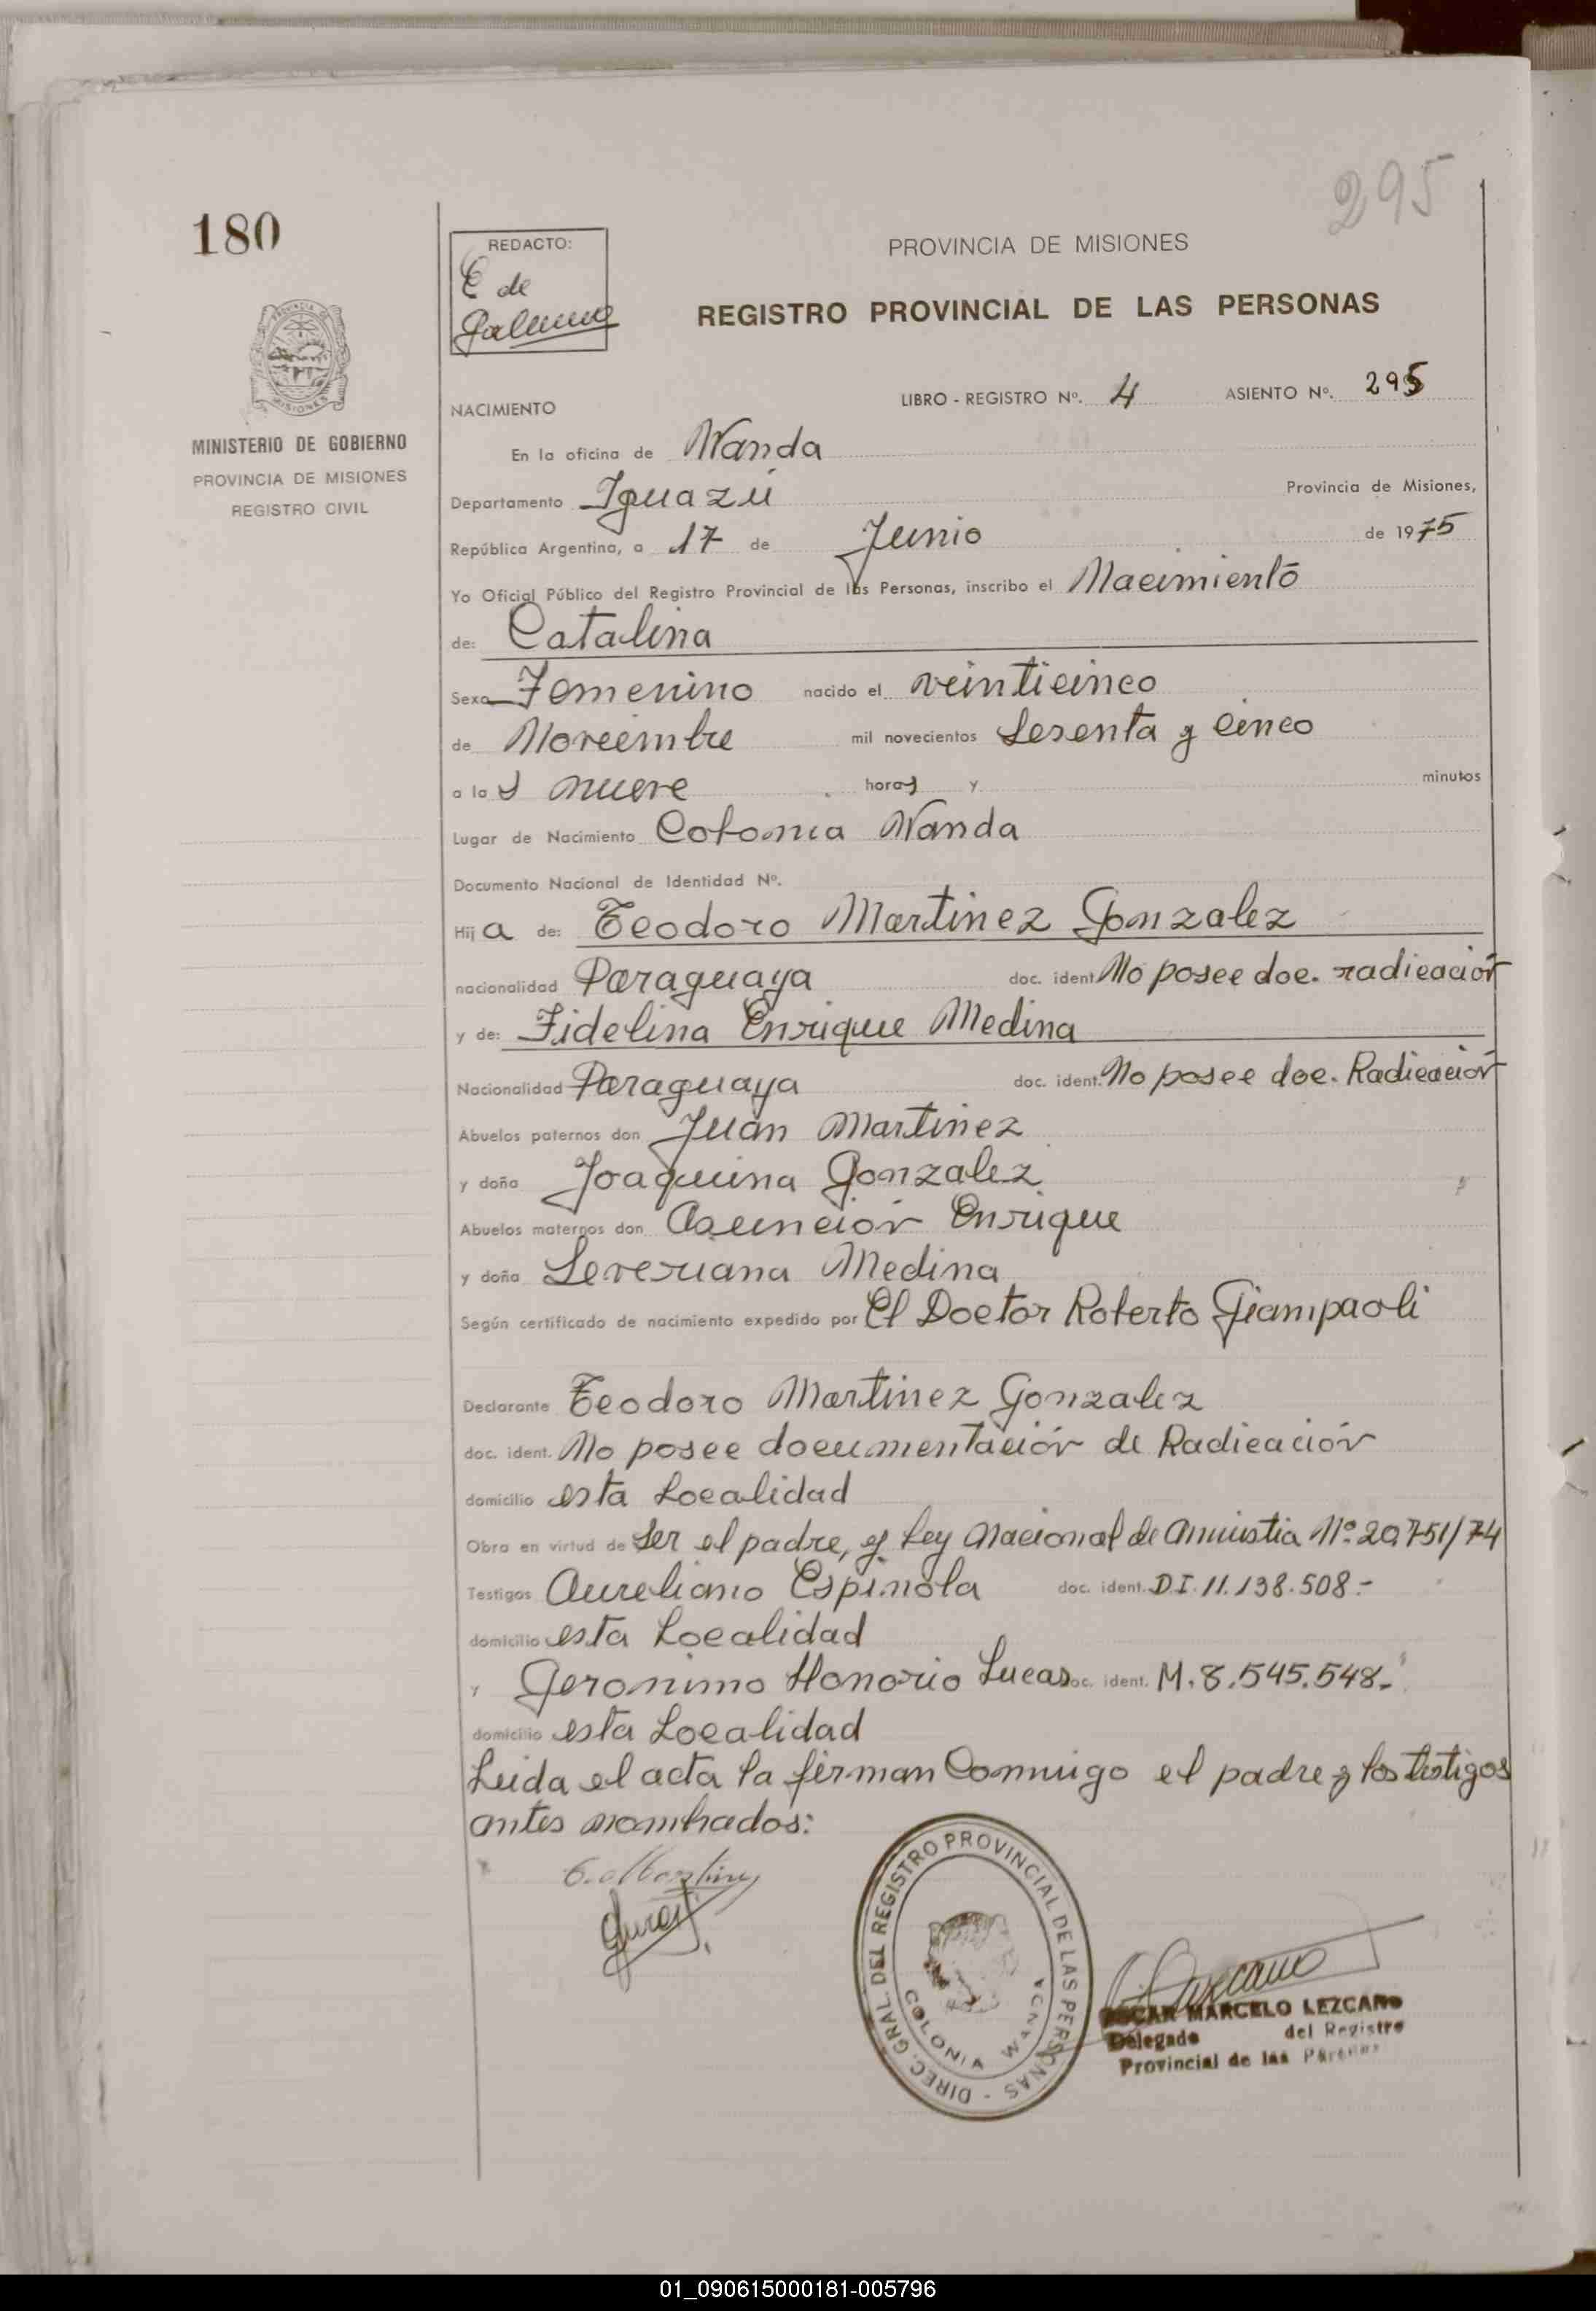 295
180
REDACTO:
E de
Galeano
PROVINCIA DE MISIONES
REGISTRO PROVINCIAL DE LAS PERSONAS
PROVINCIA DE MISIONES
MINISTERIO DE GOBIERNO
PROVINCIA DE MISIONES
REGISTRO CIVIL
NACIMIENTO LIBRO - REGISTRO Nº. 4 ASIENTO Nº. 295
En la oficina de Wanda
Departamento Iguazú Provincia de Misiones,
República Argentina, a 17 de Junio de 1975
Yo Oficial Público del Registro Provincial de las Personas, inscribo el Nacimiento
de: Catalina
Sexo Femenino nacido el veinticinco
de Noviembre mil novecientos Sesenta y cinco
a las nueve horas y minutos
Lugar de Nacimiento Colonia Wanda
Documento Nacional de Identidad Nº.
Hija de: Teodoro Martinez Gonzalez
nacionalidad Paraguaya doc. ident. No posee doc. radicación
y de: Fidelina Enrique Medina
Nacionalidad Paraguaya doc. ident. No posee doc. Radicación
Abuelos paternos don Juan Martinez
y doña Joaquina Gonzalez
Abuelos maternos don Asunción Enrique
y doña Severiana Medina
Según certificado de nacimiento expedido por El Doctor Roberto Giampaoli
Declarante Teodoro Martinez Gonzalez
doc. ident. No posee documentación de Radicación
domicilio esta Localidad
Obra en virtud de Ser el padre, y Ley Nacional de Amnistia Nº 20.751/74
Testigos Aureliano Espinola doc. ident. D.I. 11.138.508.-
domicilio esta Localidad
y Geronimo Honorio Lucas doc. ident. M. 8.545.548.-
domicilio esta Localidad
Leida el acta la firman Conmigo el padre y los testigos
antes nombrados:
DIREC. GRAL. DEL REGISTRO PROVINCIAL DE LAS PERSONAS -
COLONIA WANDA
OSCAR MARCELO LEZCANO
Delegado del Registro
Provincial de las Personas
01_090615000181-005796